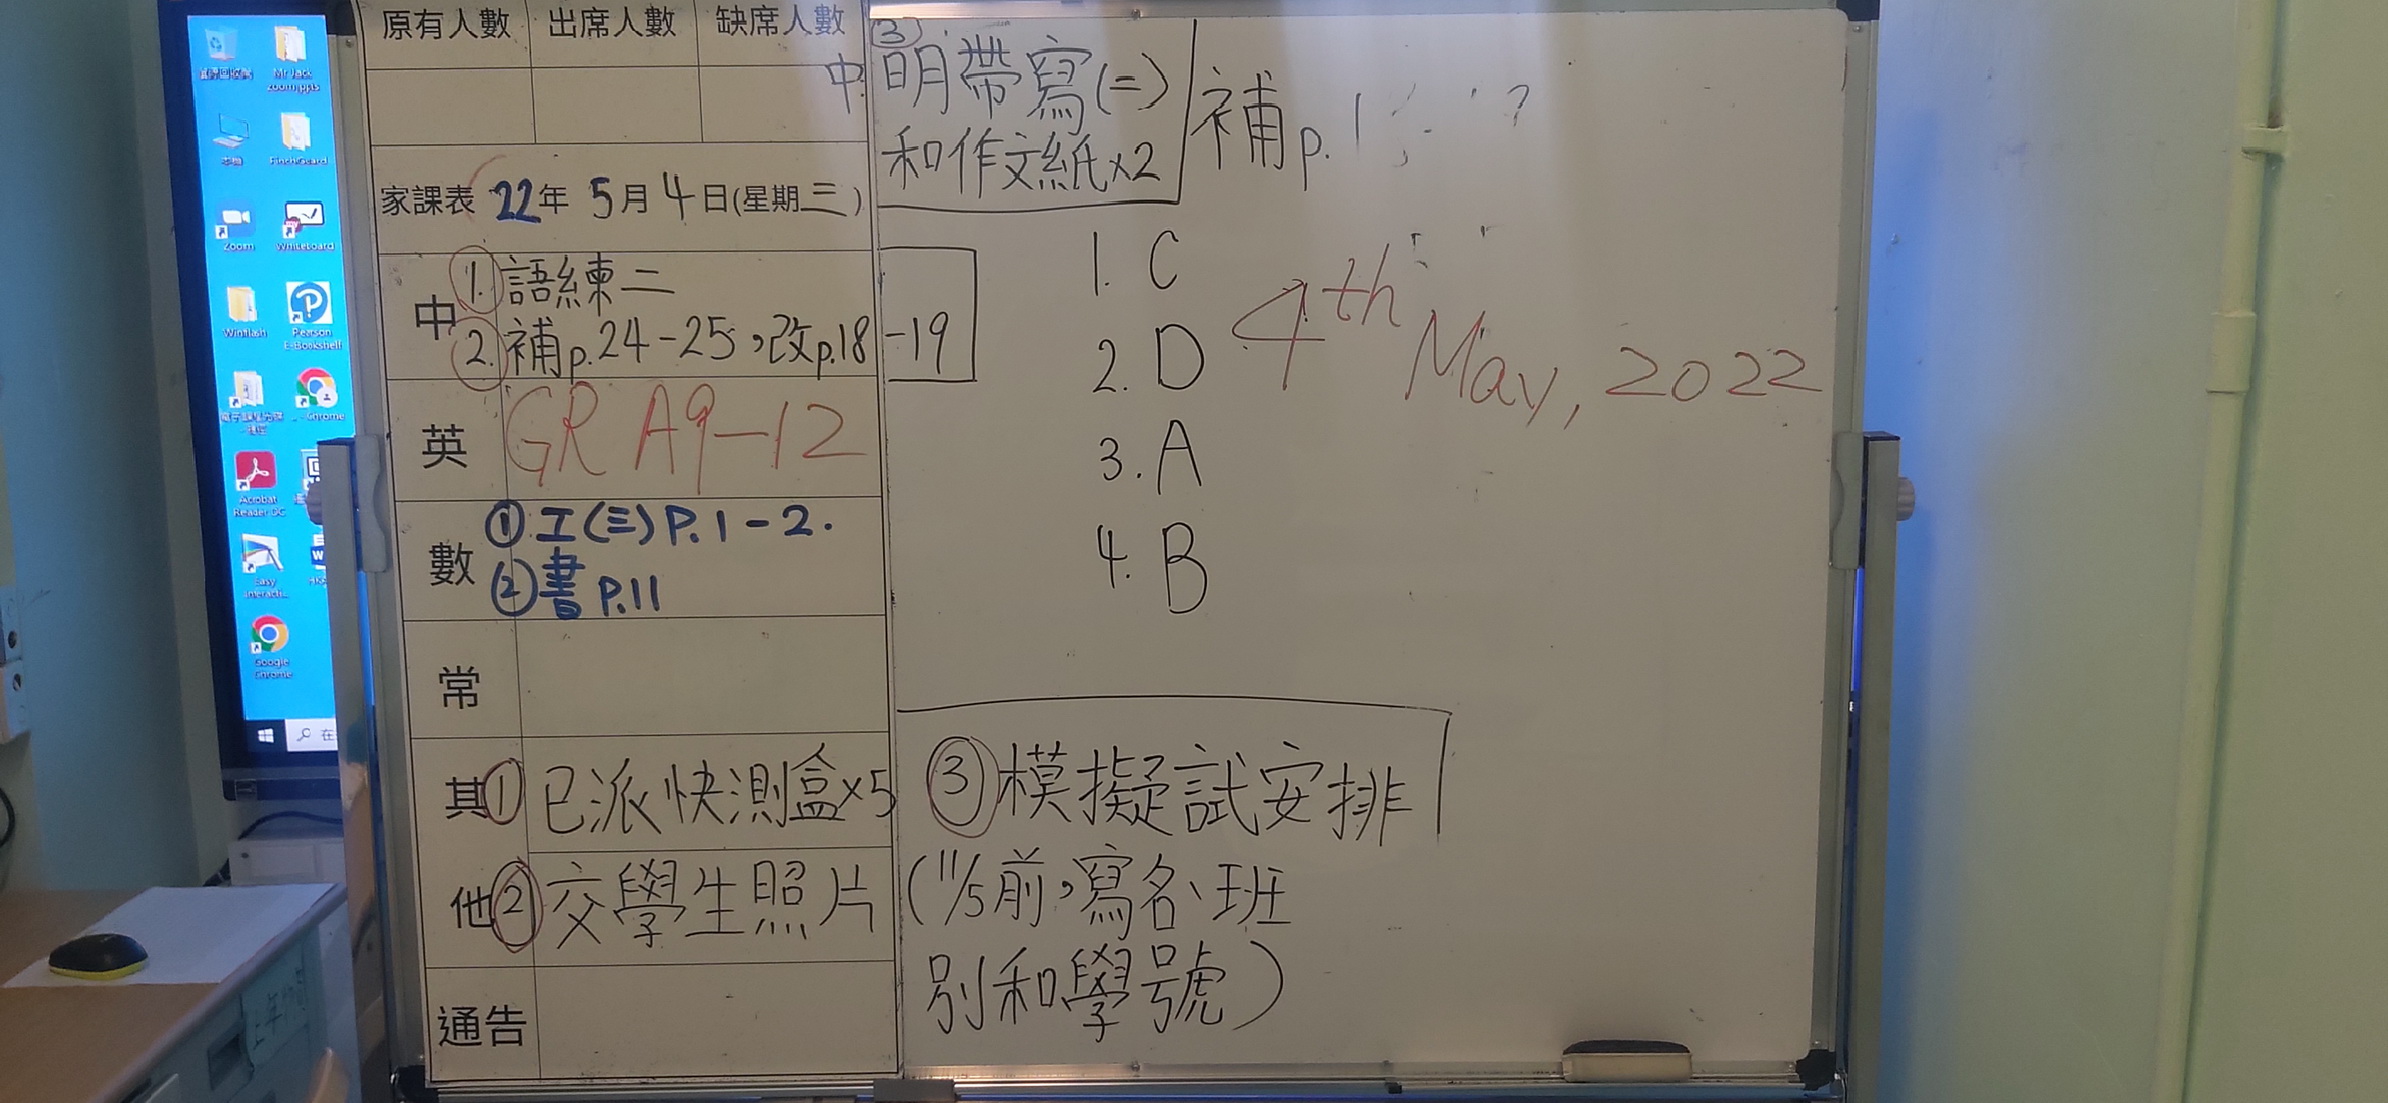 原有人數 出席人數 缺席人數
家課表 22年 5月4日(星期三)
中 1. 語練二
2. 補p.24-25,改p.18-19
英 GR A9-12
數 ① 工(三) P.1-2.
② 書 P.11
常
其他 ① 已派快測盒x5
② 交學生照片 (11/5前,寫名、班
別和學號)
③ 模擬試安排
通告
中 ③ 明帶寫(二)
和作文紙x2
補p.1
1. C
2. D
3. A
4. B
4th May, 2022
Mr Jack
Zoom ppts
本機
Zoom
Whiteboard
Winflash
Pearson
E-Bookshelf
Chrome
Acrobat
Reader DC
Easy
Interacti...
Google
Chrome
在